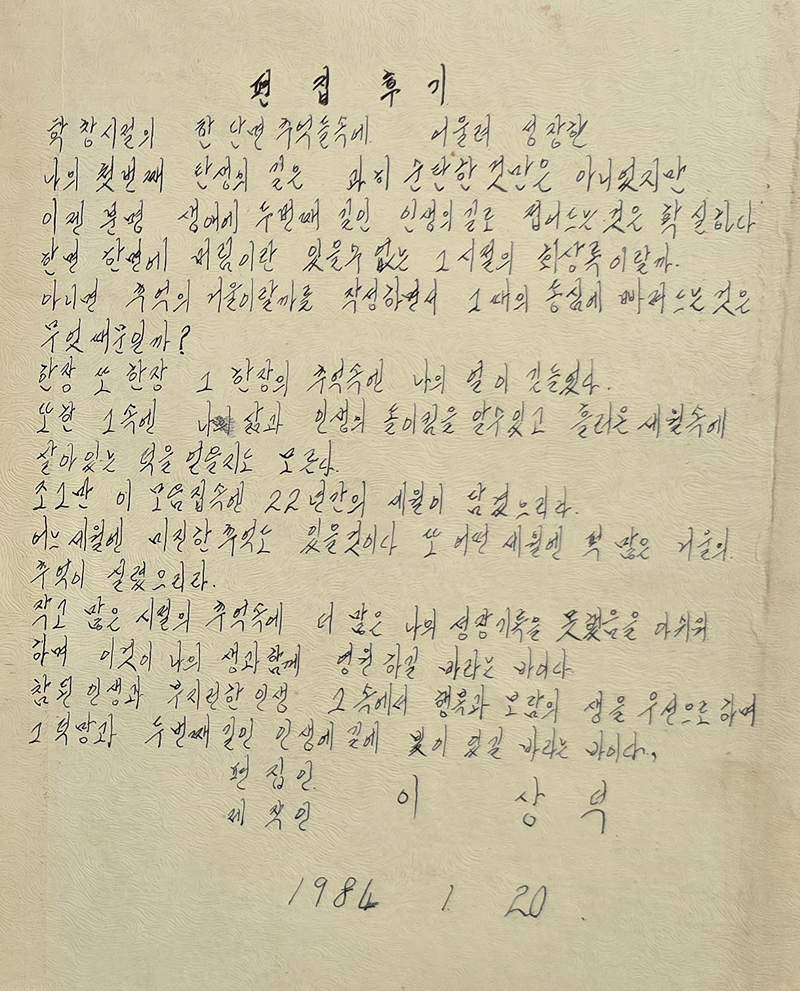 편 집 후 기
학창시절의 한 단면 추억들속에 어울려 성장한
나의 첫번째 탄생의 길은 과히 순탄한 것만은 아니었지만
이젠 분명 생애에 두번째 길인 인생의 길로 접어드는 것은 확실하다
한면 한면에 버림이란 있을수 없는 그 시절의 회상록이랄까.
아니면 추억의 거울이랄까를 작성하면서 그때의 동심에 빠져드는 것은
무엇 때문일까?
한장 또 한장 그 한장의 추억속엔 나의 얼이 깃들었다.
또한 그속엔 나의 삶과 인생의 돌이킴을 알수있고 흘러온 세월속에
살아있는 덕을 얻을지도 모른다.
조그만 이 모음집속엔 22년간의 세월이 담겼으리라.
어느세월엔 미진한 추억도 있을것이다 또 어떤 세월엔 퍽 많은 거울의
추억이 실렸으리라.
작고 많은 시절의 추억속에 더 많은 나의 성장기록을 못했음을 아쉬워
하며 이것이 나의 생과 함께 영원하길 바라는 바이다
참된 인생과 부지런한 인생 그 속에서 행복과 보람의 생을 우선으로 하며
그 덕망과 두번째 길인 인생에 길에 빛이 있길 바라는 바이다.,
편 집 인
제 작 인 이 상 덕
1984 1. 20.